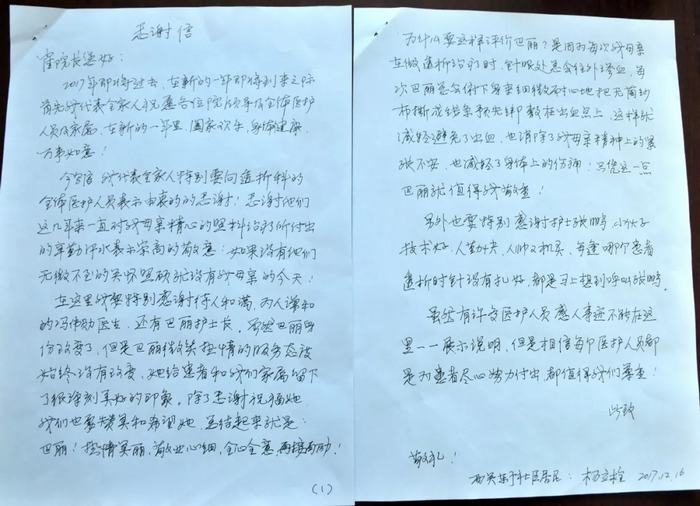 感谢信
霍院长您好：
2017年即将过去，在新的一年即将到来之际
首先我代表全家人祝愿各位院领导及全体医护
人员及家属，在新的一年里，阖家欢乐，身体健康，
万事如意！
今写信我代表全家人特别要向透析科的
全体医护人员表示由衷的的感谢！感谢他们
这几年来一直对我母亲精心的照料治疗所付出
的辛勤汗水表示崇高的敬意：如果没有他们
无微不至的关怀照顾就没有我母亲的今天！
在这里我要特别感谢待人和蔼，为人谦和
的冯伟勋医生，还有巴丽护士长，虽然巴丽身
份改变了，但是巴丽微笑热情的服务态度
始终没有改变，她给患者和我们家属留下
了很深刻美好的印象。除了感谢祝福她
我们也要赞美和看望她，总结起来就是：
巴丽！热情美丽，敬业心细，全心全意，再接再励！
（1）
为什么要这样评价巴丽？是因为每次我母亲
在做透析治疗时，针眼处总会往外渗血，每
次巴丽总会俯下身来细微耐心地把无菌纱
布撕成结条预先绑敷在出血点上，这样就
减轻避免了出血，也消除了我母亲精神上的紧
张不安，也减轻了身体上的伤痛：只凭这一点
巴丽就值得我敬重！
另外也要特别感谢护士张鹏，小伙子
技术好，人勤快，人帅又和气，每逢哪个患者
透析时针没有扎好，都是马上想到呼叫张鹏。
虽然有许多医护人员感人事迹不能在这
里一一展示说明，但是相信每个医护人员都
是为患者尽心努力付出，都值得我们尊重！
此致
敬礼！
2017.12.16